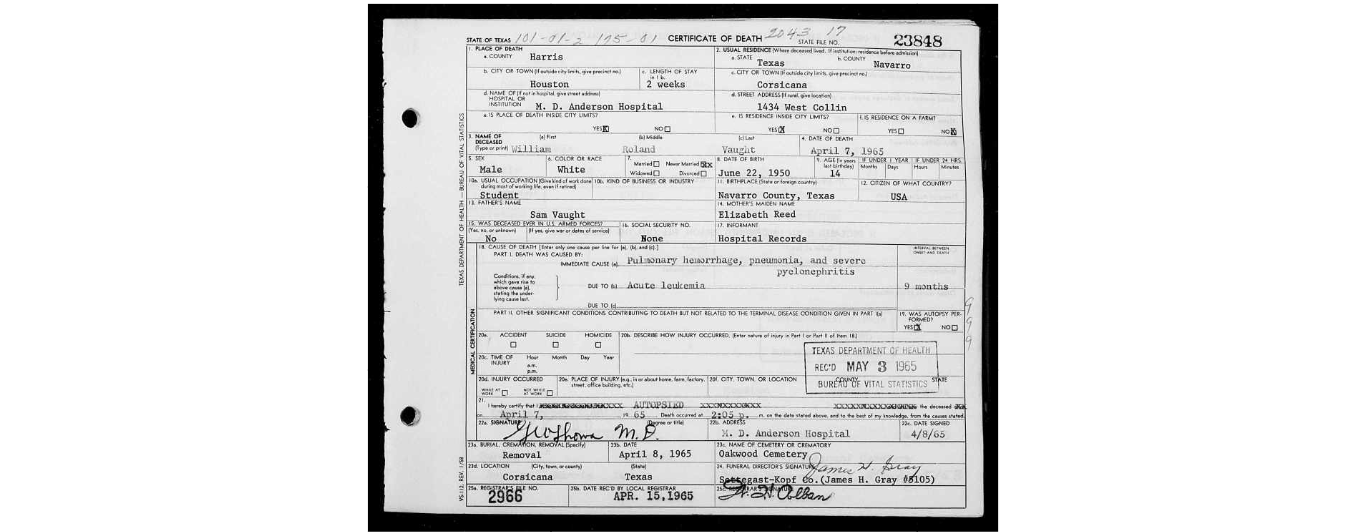 STATE OF TEXAS 101-01-2 195-01 CERTIFICATE OF DEATH 2043 17 STATE FILE NO. 23848
1. PLACE OF DEATH
a. COUNTY Harris
2. USUAL RESIDENCE (Where deceased lived. If institution: residence before admission)
a. STATE Texas b. COUNTY Navarro
b. CITY OR TOWN (If outside city limits, give precinct no.) Houston
c. LENGTH OF STAY in 1 b. 2 weeks
c. CITY OR TOWN (If outside city limits, give precinct no.) Corsicana
d. NAME OF (If not in hospital, give street address) HOSPITAL OR INSTITUTION M. D. Anderson Hospital
d. STREET ADDRESS (If rural, give location) 1434 West Collin
e. IS PLACE OF DEATH INSIDE CITY LIMITS? YES X NO
e. IS RESIDENCE INSIDE CITY LIMITS? YES X NO
f. IS RESIDENCE ON A FARM? YES NO X
3. NAME OF DECEASED (Type or print) (a) First William (b) Middle Roland (c) Last Vaught
4. DATE OF DEATH April 7, 1965
5. SEX Male
6. COLOR OR RACE White
7. Married Never Married Widowed Divorced
8. DATE OF BIRTH June 22, 1950
9. AGE (In years last birthday) 14
IF UNDER 1 YEAR Months Days
IF UNDER 24 HRS. Hours Minutes
10a. USUAL OCCUPATION (Give kind of work done during most of working life, even if retired) Student
10b. KIND OF BUSINESS OR INDUSTRY
11. BIRTHPLACE (State or foreign country) Navarro County, Texas
12. CITIZEN OF WHAT COUNTRY? USA
13. FATHER'S NAME Sam Vaught
14. MOTHER'S MAIDEN NAME Elizabeth Reed
15. WAS DECEASED EVER IN U.S. ARMED FORCES? (Yes, no, or unknown) (If yes, give war or dates of service) No
16. SOCIAL SECURITY NO. None
17. INFORMANT Hospital Records
18. CAUSE OF DEATH [Enter only one cause per line for (a), (b), and (c).]
INTERVAL BETWEEN ONSET AND DEATH
PART I. DEATH WAS CAUSED BY:
IMMEDIATE CAUSE (a) Pulmonary hemorrhage, pneumonia, and severe
pyelonephritis
Conditions, if any, which gave rise to above cause (a), stating the underlying cause last.
DUE TO (b) Acute leukemia 9 months
DUE TO (c)
PART II. OTHER SIGNIFICANT CONDITIONS CONTRIBUTING TO DEATH BUT NOT RELATED TO THE TERMINAL DISEASE CONDITION GIVEN IN PART I(a)
19. WAS AUTOPSY PERFORMED? YES X NO
999
20a. ACCIDENT SUICIDE HOMICIDE
20b. DESCRIBE HOW INJURY OCCURRED. (Enter nature of injury in Part I or Part II of Item 18.)
20c. TIME OF INJURY Hour a.m. p.m. Month Day Year
TEXAS DEPARTMENT OF HEALTH
REC'D MAY 3 1965
BUREAU OF VITAL STATISTICS
20d. INJURY OCCURRED WHILE AT WORK NOT WHILE AT WORK
20e. PLACE OF INJURY (e.g., in or about home, farm, factory, street, office building, etc.)
20f. CITY, TOWN, OR LOCATION COUNTY STATE
21. I hereby certify that I AUTOPSIED the deceased
on April 7, 19 65 Death occurred at 2:05 p. m. on the date stated above, and to the best of my knowledge, from the causes stated.
22a. SIGNATURE (Degree or title) M.D.
22b. ADDRESS M. D. Anderson Hospital
22c. DATE SIGNED 4/8/65
23a. BURIAL, CREMATION, REMOVAL (Specify) Removal
23b. DATE April 8, 1965
23c. NAME OF CEMETERY OR CREMATORY Oakwood Cemetery
23d. LOCATION (City, town, or county) Corsicana (State) Texas
24. FUNERAL DIRECTOR'S SIGNATURE James H. Gray
Settegast-Kopf Co. (James H. Gray #5105)
25a. REGISTRAR'S FILE NO. 2966
25b. DATE REC'D BY LOCAL REGISTRAR APR. 15, 1965
25c. REGISTRAR'S SIGNATURE
TEXAS DEPARTMENT OF HEALTH — BUREAU OF VITAL STATISTICS
MEDICAL CERTIFICATION
VS-112, REV. 1/58